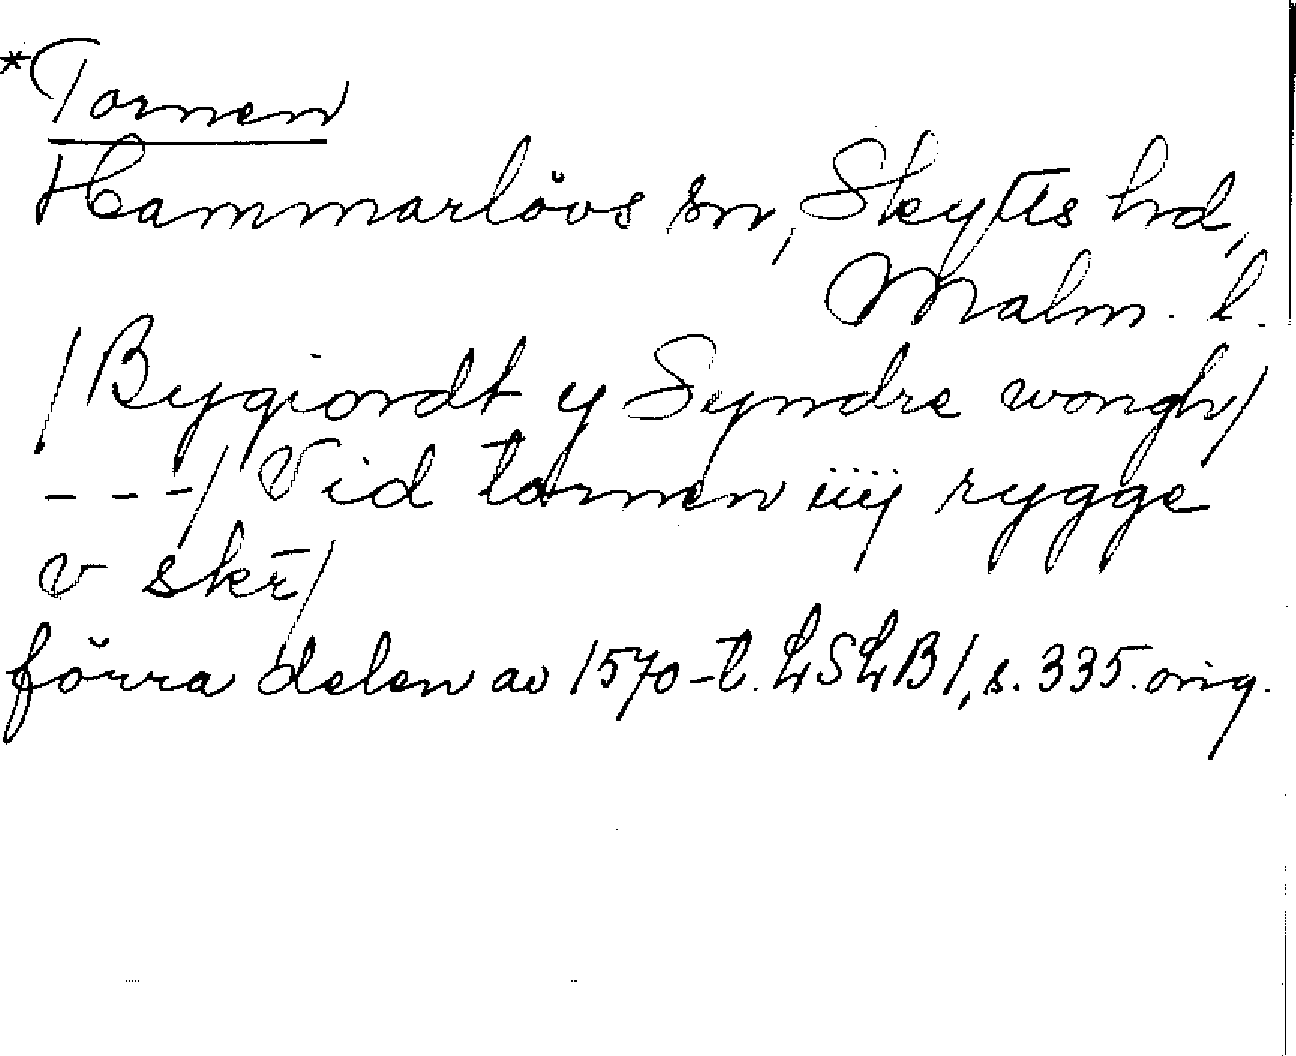 *Tornen
Hammarlövs sn, Skytts hd,
Malm. l.
/Bygiordt y Syndre wongh/
---/ Vid tornen iiij rygge
v skē/
förra delen av 1570-t. LSLB1, s. 335. orig.